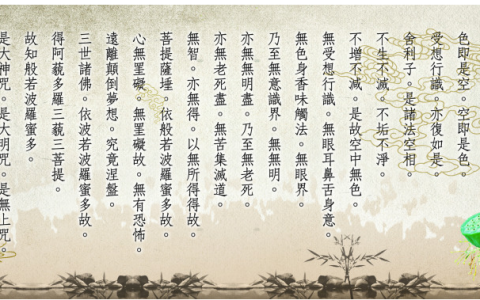 色即是空。空即是色。
受想行識。亦復如是。
舍利子。是諸法空相。
不生不滅。不垢不淨。
不增不減。是故空中無色。
無受想行識。無眼耳鼻舌身意。
無色身香味觸法。無眼界。
乃至無意識界。無無明。
亦無無明盡。乃至無老死。
亦無老死盡。無苦集滅道。
無智。亦無得。以無所得故。
菩提薩埵。依般若波羅蜜多故。
心無罣礙。無罣礙故。無有恐怖。
遠離顛倒夢想。究竟涅盤。
三世諸佛。依波若波羅蜜多故。
得阿藐多羅三藐三菩提。
故知般若波羅蜜多。
是大神咒。是大明咒。是無上咒。